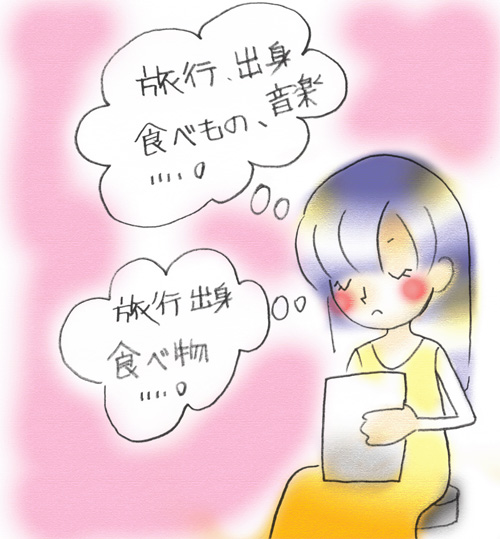 旅行、出身
食べもの、音楽
・・・・。
旅行 出身
食べ物
・・・・。